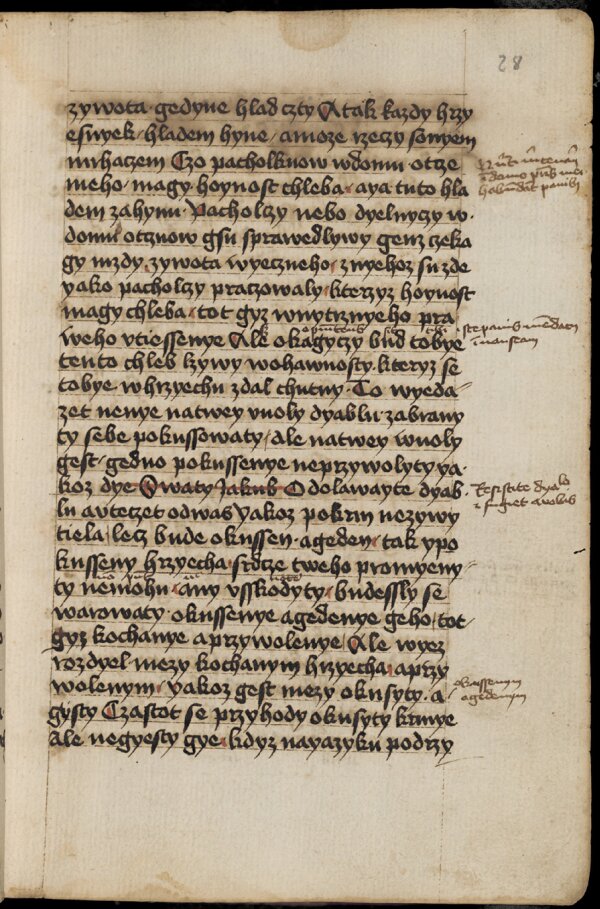 28
zywota · gedyne hlad czty A tak kazdy hrzy
esnyek / hladem hyne / amoze rzeczy ssynem
mrhaczem Czo pacholkuow wdomu · otcze
meho / magy hoynost chleba / aya tuto hla
dem zahynu · Pacholczy nebo dyelnyczy w ·
domu otcznow gsu sprawedlywy genz czeka
gy mzdy · zywota wyeczneho / znyehoz su zde
yako pacholczy praczowaly / kterzyz hoynost
magy chleba / tot gyz wnytrznyeho pra
weho vtiessenye Ale okagyczy bud tobye
tento chleb lzywy wohawnosty · kteryz se
tobye whrzyechu zdal chutny · To wyeda
zet nenye natwey vuoly dyablu · zabrany
ty sebe pokussowaty / ale natwey wuoly
gest · gedno pokussenye neprzywolyty ya ·
koz dye Swaty Jakub Odolawayte dyab ·
lu avteczet odwas yakoz pokrm nezywy
tiela / lecz bude okussen · ageden / tak ypo
kusseny hrzyecha / srdcze tweho promyeny /
ty nemohu / any vsskodyty / budessly se
warowaty · okussenye agedenye geho / tot ·
gyz kochanye aprzywolenye / Ale wyez
rozdyel · mezy kochanym hrzyecha / aprzy
wolenym / yakoz gest mezy okusyty · a
gysty Czastot se przyhody okusyty krmye
ale negyesty gye / kdyz nayazyku podrzy
habundant panibus
ste panis mendacii
Resistite dyabolo
et fugiet a vobis
okussenym
agedenym